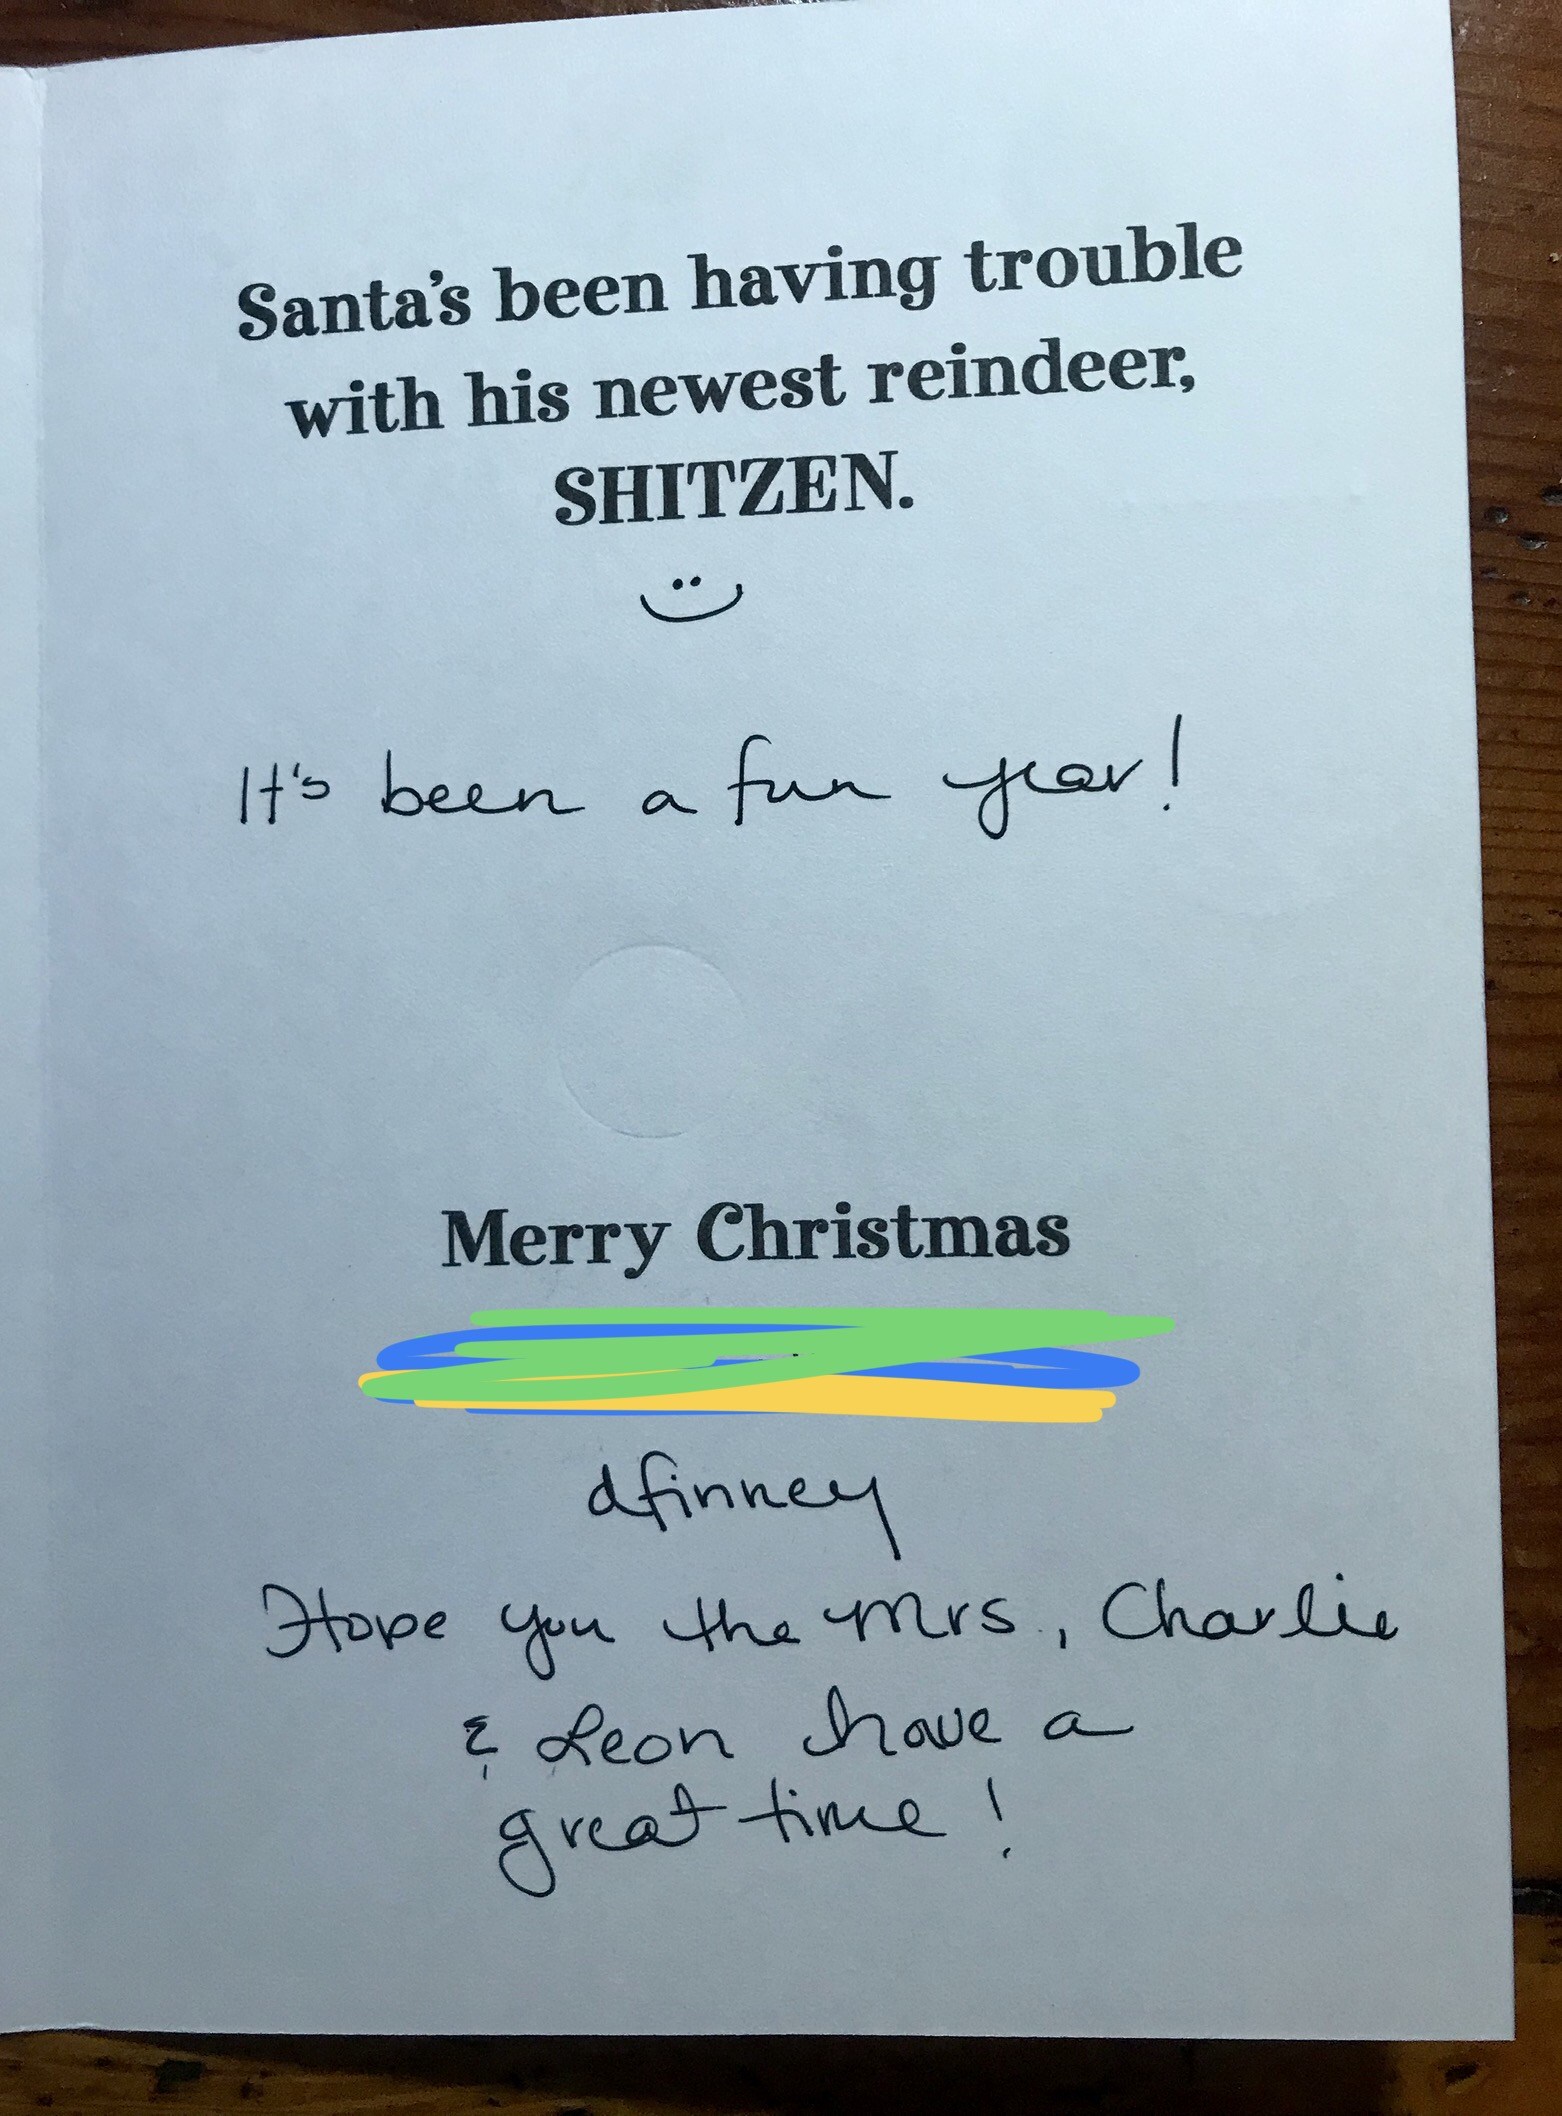 Santa's been having trouble
with his newest reindeer,
SHITZEN.
It's been a fun year!
Merry Christmas
dfinney
Hope you the Mrs., Charlie
& Leon have a
great time!